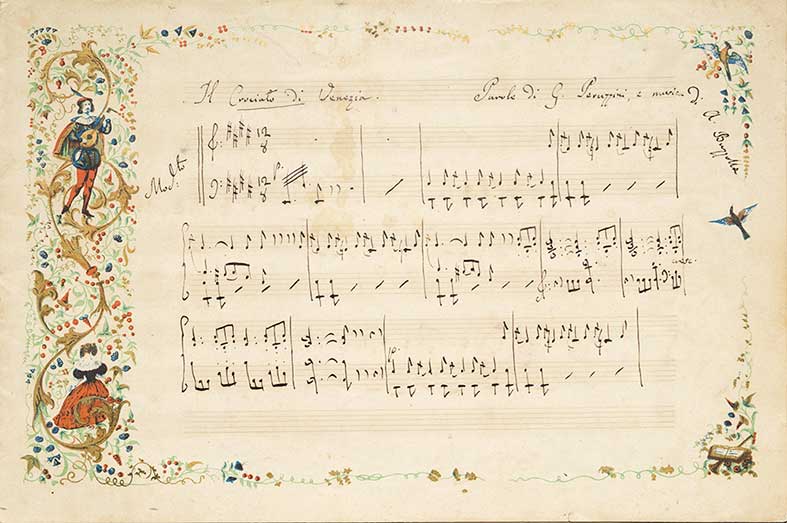 Il Crociato di Venezia. Parole di G. Peruzzini, e musica di A. Buzzolla
Mod.to
12/8
12/8
p.
p.